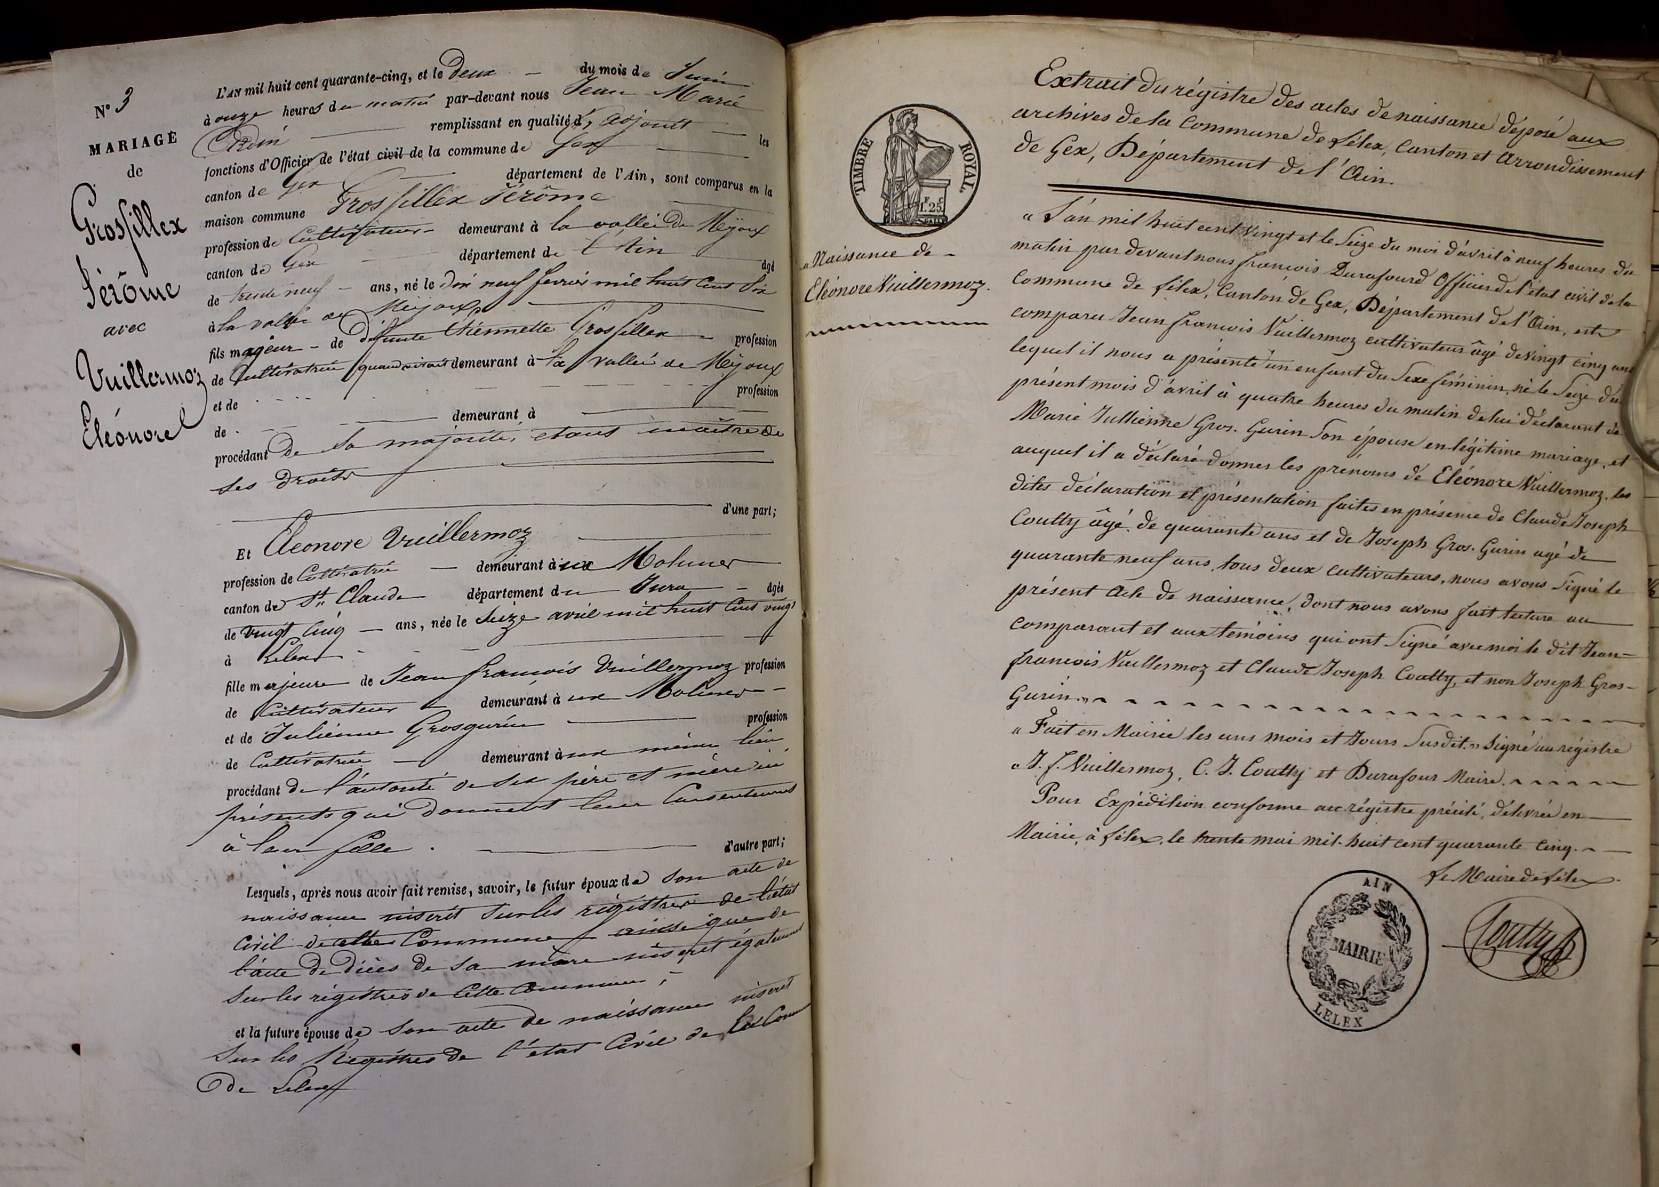 N° 3
MARIAGE
de
Grosfillex
Jérôme
avec
Vuillermoz
Eléonore
L'AN mil huit cent quarante-cinq, et le Deux du mois de Juin
à onze heures du matin par-devant nous Jean Marie
remplissant en qualité d'adjoint les
fonctions d'Officier de l'état civil de la commune de Gex
canton de Gex département de l'Ain, sont comparus en la
maison commune Grosfillex Jérôme
profession de Cultivateur demeurant à la vallée de Mijoux
canton de Gex département de l'Ain âgé
de trente neuf ans, né le dix neuf fevrier mil huit cent six
à la vallée de Mijoux
fils majeur de défunte Etiennette Grosfillex profession
de Cultivatrice quand vivait demeurant à la vallée de Mijoux
et de profession
de demeurant à
procédant de sa majorité, etant maitre de
ses droits
d'une part;
Et Eléonore Vuillermoz
profession de Cultivatrice demeurant à aux Molunes
canton de St Claude département du Jura âgée
de vingt cinq ans, née le Seize avril mil huit cent vingt
à Lelex
fille majeure de Jean françois Vuillermoz profession
de Cultivateur demeurant à aux Molunes
et de Julienne Grosgurin profession
de Cultivatrice demeurant à au même lieu
procédant de l'autorité de ses père et mère ici
présents qui donnent leur Consentement
à leur fille d'autre part;
Lesquels, après nous avoir fait remise, savoir, le futur époux de son acte de
naissance inscrit sur les régistres de l'état
Civil de cette Commune ainsi que de
l'acte de décès de sa mère inscrit également
sur les régistres de cette Commune;
et la future épouse de son acte de naissance inscrit
sur les Registres de l'état Civil de la Com
de Lelex
TIMBRE ROYAL
1. 25
Naissance de
Eléonore Vuillermoz.
Extrait du régistre des actes de naissance déposé aux
archives de la Commune de Lélex, Canton et Arrondissement
de Gex, Département de l'Ain.
« L'an mil huit cent vingt et le Seize du moi d'avril à neuf heures du
matin par devant nous françois Durafourd Officier de l'état civil de la
Commune de Lélex, Canton de Gex, Département de l'Ain, est
comparu Jean françois Vuillermoz cultivateur âgé de vingt cinq ans
lequel il nous a présenté un enfant du Sexe féminin né le Seize du
présent mois d'avril à quatre heures du matin de lui déclarant de
Marie Jullienne Gros-Gurin Son épouse en légitime mariage, et
auquel il a déclaré donner les prénoms de Eléonore Vuillermoz, les
dites déclaration et présentation faites en présence de Claude Joseph
Coutty âgé de quarante ans et de Joseph Gros-Gurin agé de
quarante neuf ans, tous deux cultivateurs, nous avons Signé le
présent acte de naissance, dont nous avons fait lecture au
comparant et aux témoins qui ont Signé avec moi le dit Jean-
françois Vuillermoz et Claude Joseph Coutty, et non Joseph Gros-
Gurin. »
« Fait en Mairie les ans mois et Jours Susdit. » Signé au régistre
« J. f. Vuillermoz, C. J. Coutty et Durafour Maire.
Pour Expédition conforme au régistre précité, délivrée en
Mairie, à Lélex, le trente mai mil-huit cent quarante cinq.
Le Maire de Lélex
Coutty
AIN
MAIRIE
LELEX